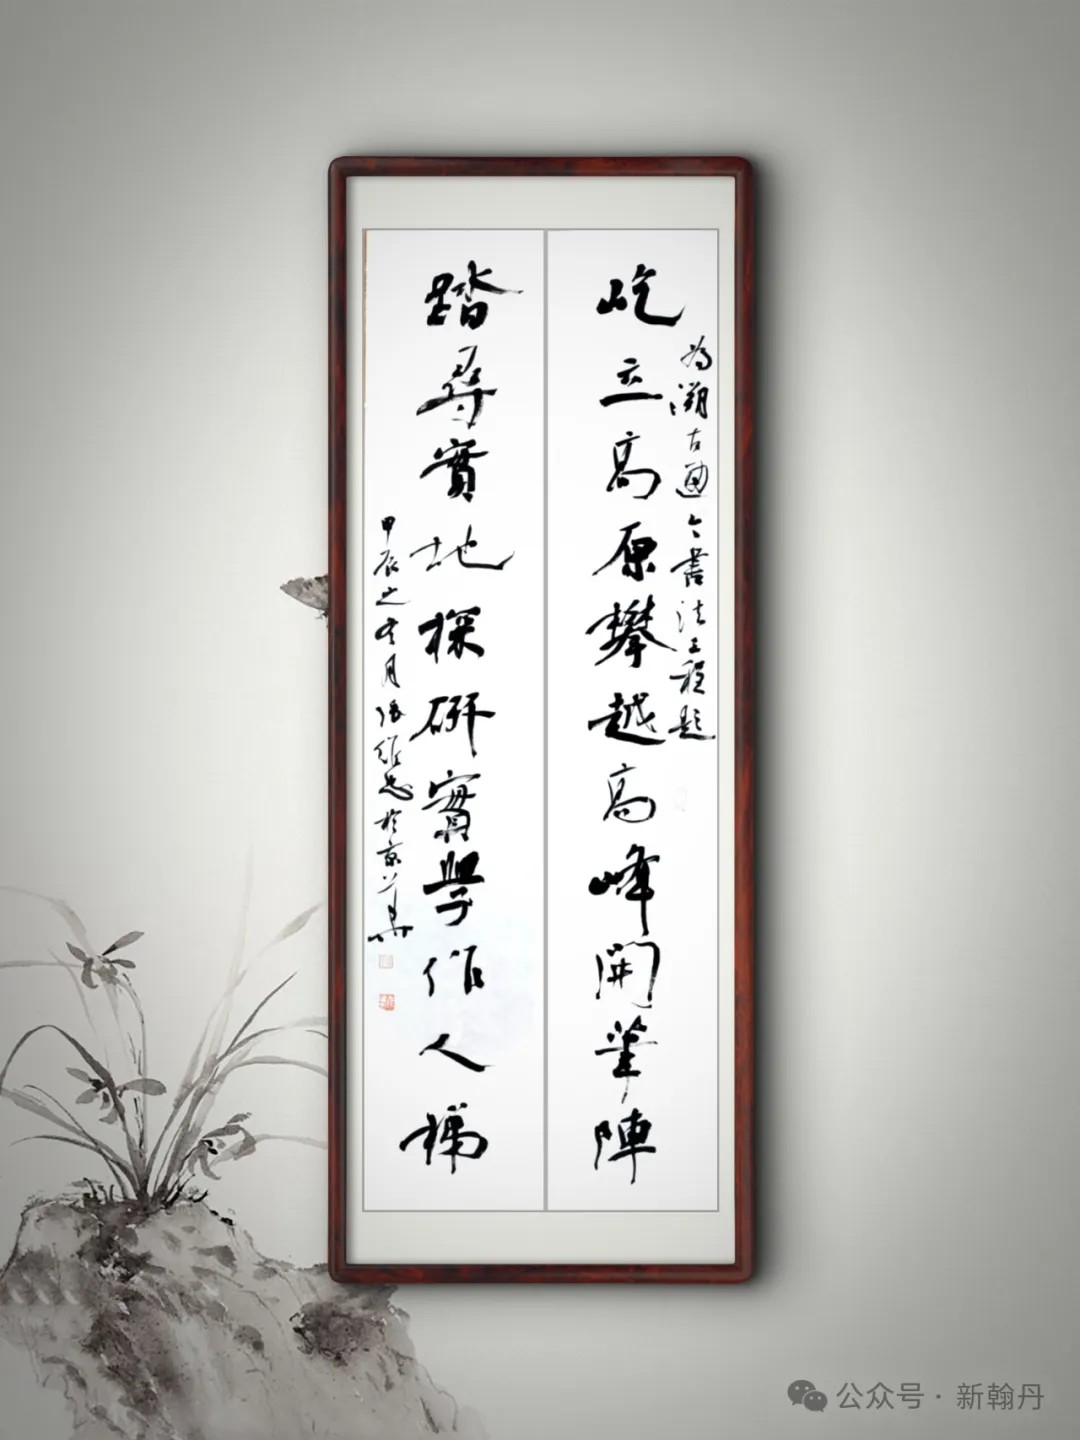 为溯古通今书法工程题
屹立高原攀越高峰開筆陣
踏尋實地探研實學作人梯
甲辰之冬月張維忠於京華
公众号·新翰丹